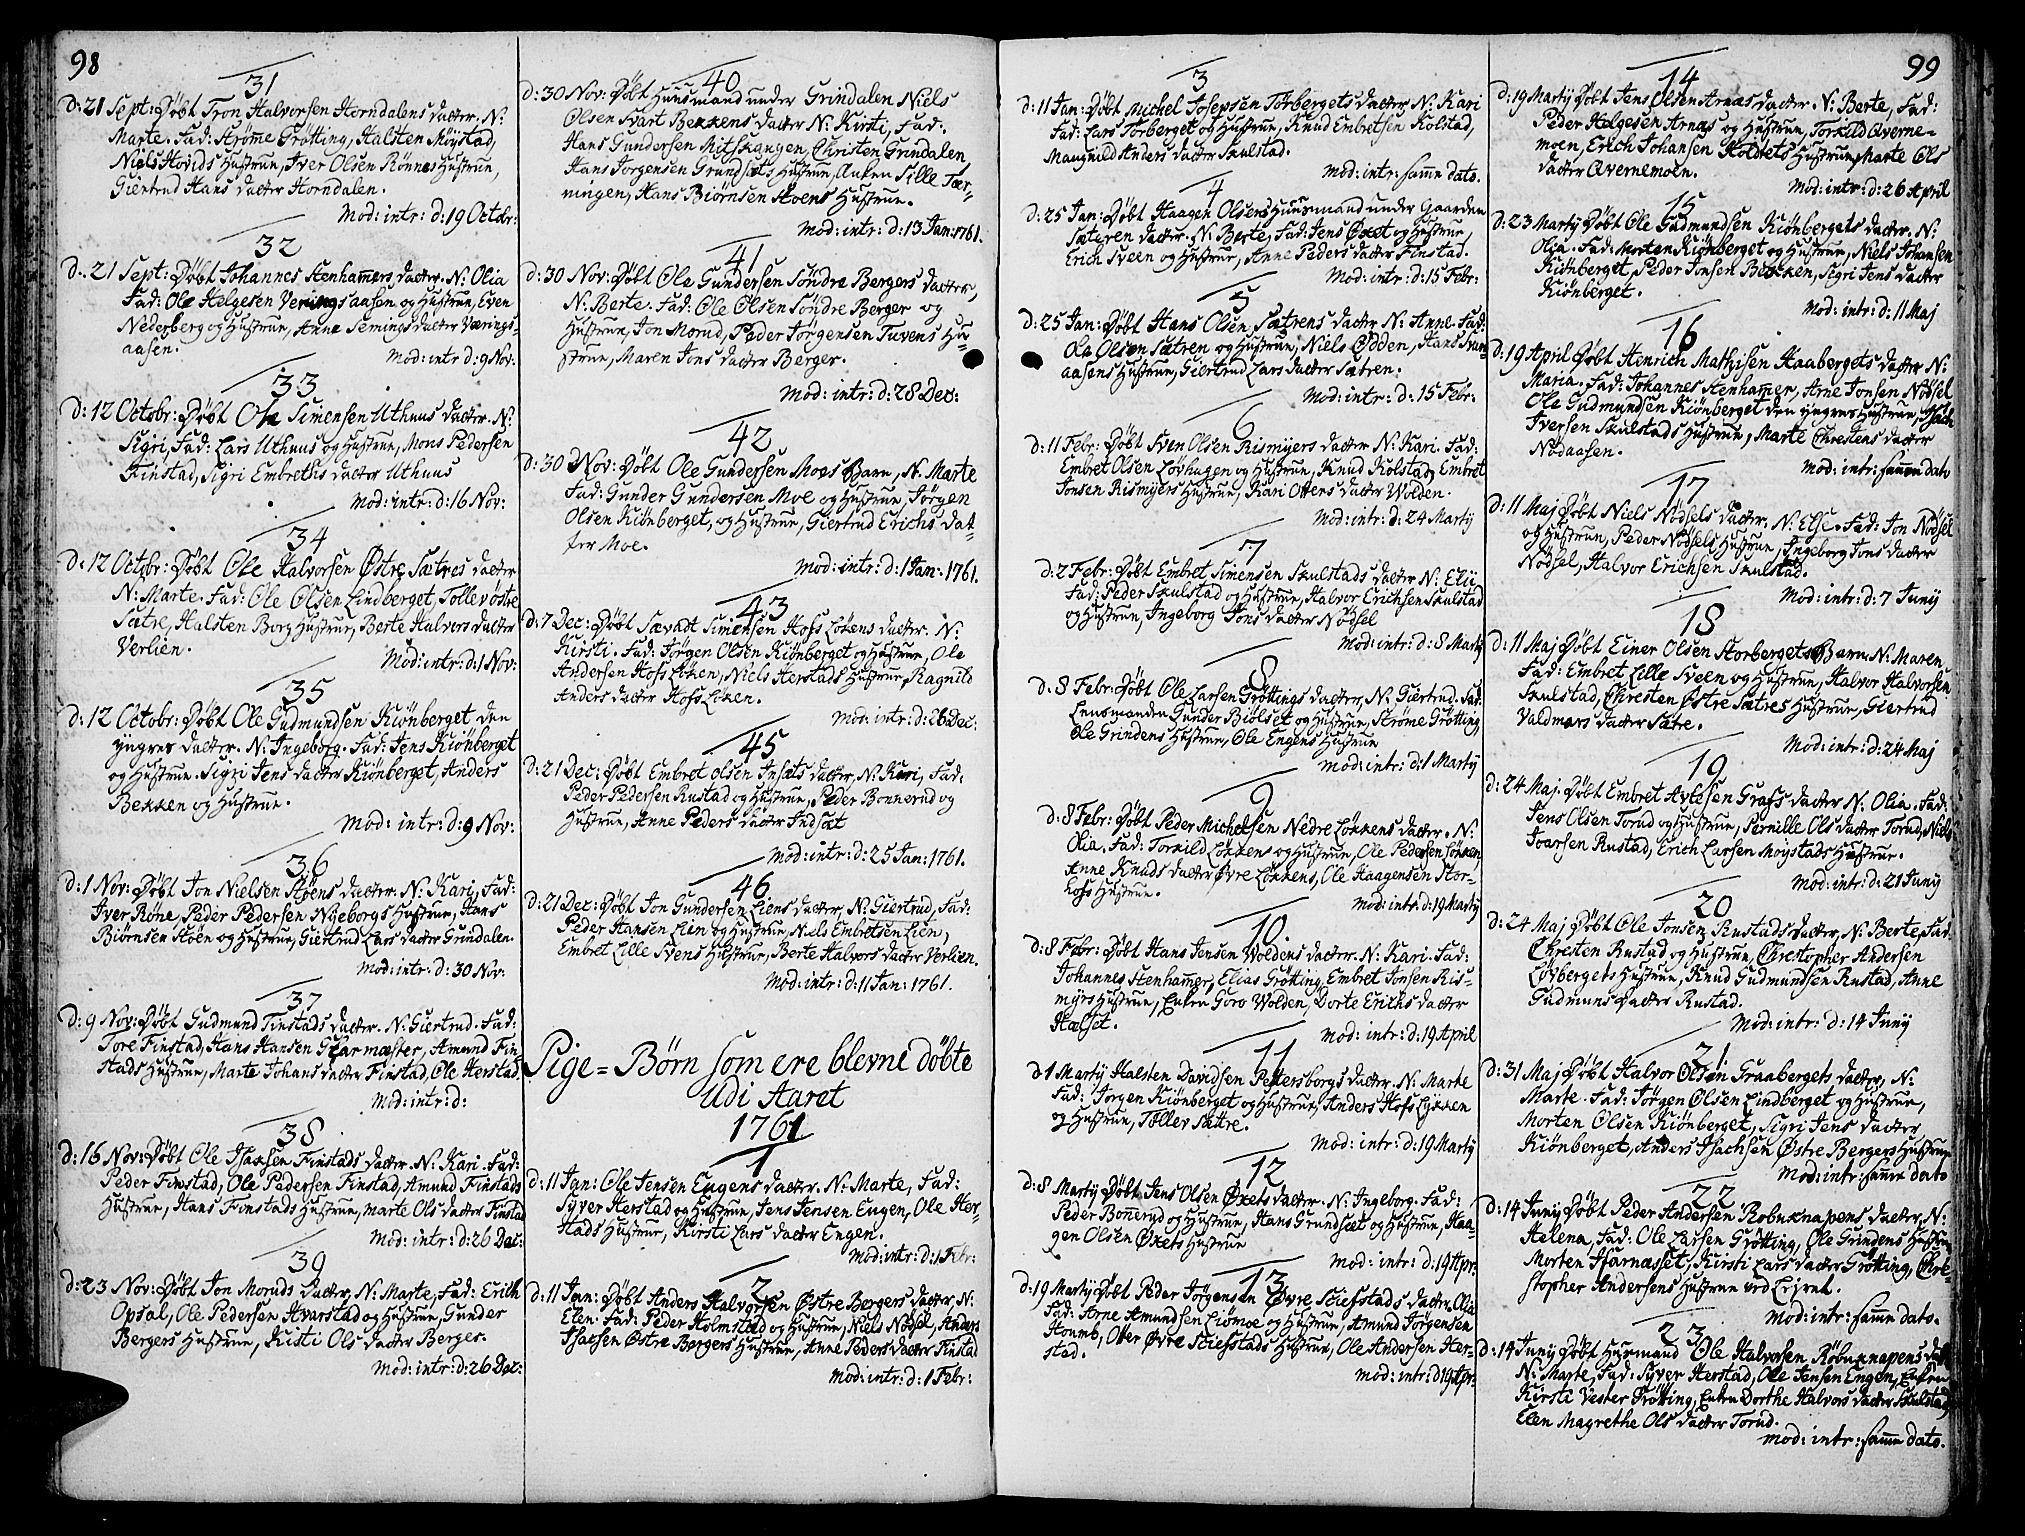 98
31
d: 21 Sept: Døbt Tron Halvorsen Horndalens datter. N:
Marte. Fad: Strøme Grøtting, Halsten Møystad,
Niels Hovids Hustrue, Iver Olsen Rønnes Hustrue,
Giertrud Hans datter Horndalen.
Mod: intr: d: 19 Octobr:
32
d: 21 Sept: Døbt Johannes Stenhamers datter. N: Olia
Fad: Ole Helgesen Veringsaasen og Hustrue, Even
Nederberg og Hustrue, Anne Semings datter Værings-
aasen.
Mod: intr d: 9 Nov:
33
d: 12 Octobr: Døbt Ole Simensen Uthuus datter. N:
Sigri, Fad: Lars Uthuus og Hustrue, Mons Pedersen
Finstad, Sigri Embrethis datter Uthuus
Mod: intr: d: 16 Nov:
34
d: 12 Octobr: Døbt Ole Halvorsen Østre Sætres datter
N: Marte. Fad: Ole Olsen Lindberget, Tollev østre
Sætre, Halsten Borg Hustrue, Berte Halvors datter
Verlien.
Mod: intr: d: 1 Nov:
35
d: 12 Octobr: Døbt Ole Gudmundsen Kiønberget den
yngres datter. N: Ingeborg. Fad: Jens Kiønberget
og Hustrue. Sigri Jens datter Kiønberget, Anders
Bekken og Hustrue.
Mod: intr: d: 9 Nov:
36
d: 1 Nov: Døbt Jon Nielsen Støens datter. N: Kari, Fad:
Iver Røne, Peder Pedersen Nyeborgs Hustrue, Hans
Biørnsen Støen og Hustrue, Giertrud Lars datter Grindalen.
Mod: intr: d: 30 Nov:
37
d: 9 Nov: Døbt Gudmund Finstads datter. N: Giertrud. Fad:
Tore Finstad, Hans Hansen Glarmæster, Amund Fin
stads Hustrue, Marte Johans datter Finstad, Ole Herstad.
Mod: intr: d:
38
d: 16 Nov: Døbt Ole Isaksen Finstads datter. N: Kari. Fad:
Peder Finstad, Ole Pedersen Finstad, Amund Finstads
Hustrue, Hans Finstads Hustrue, Marte Ols datter Finstad
Mod: intr: d: 26 Dec:
39
d: 23 Nov: Døbt Jon Moruds datter, N: Marte, Fad: Erich
Opsal, Ole Pedersen Hvarstad og Hustrue, Gunder
Bergers Hustrue, Kristi Ols datter Berger.
Mod: intr: d: 26 Dec:
40
d: 30 Nov: Døbt Huusmand under Grindalen Niels
Olsen Svart Bekkens datter N: Kirsti, Fad:
Hans Gundersen Mitskangen, Christen Grindalen,
Hans Jørgensen Grundsæts Hustrue, Enken Sille Tær-
ningen, Hans Biørnsen Støens Hustrue.
Mod: intr: d: 13 Jan: 1761.
41
d: 30 Nov: Døbt Ole Gundersen Søndre Bergers datter,
N: Berte. Fad: Ole Olsen Søndre Berger og
Hustrue, Jon Morud, Peder Jørgensen Tuvens Hu-
strue, Maren Jons datter Berger.
Mod: intr: d: 28 Dec:
42
d: 30 Nov: Døbt Ole Gundersen Moes Barn, N: Marte
Fad: Gunder Gundersen Moe og Hustrue, Jørgen
Olsen Kiønberget, og Hustrue, Giertrud Erichs dat
ter Moe.
Mod: intr: d: 1 Jan: 1761.
43
d: 7 Dec: Døbt Sævadt Simensen Hofs Løkens datter. N:
Kirsti. Fad: Jørgen Olsen Kiønberget og Hustrue, Ole
Andersen Hofs Løken, Niels Herstads Hustrue, Ragnild
Anders datter Hofs Løken.
Mod: intr: d: 26 Dec:
45
d: 21 Dec: Døbt Embret Olsen Insæts datter, N: Kari, Fad:
Peder Pedersen Rustad og Hustrue, Peder Bonnerud og
Hustrue, Anne Peders datter Indsæt
Mod: intr: d: 25 Jan: 1761.
46
d: 21 Dec: Døbt Jon Gundersen Liens datter, N: Giertrud, Fad:
Peder Hansen Lien og Hustrue, Niels Embretsen Lien,
Embret Lille Svens Hustrue, Berte Halvors datter Verlien.
Mod: intr: d: 11 Jan: 1761.
Pige-Børn som ere blevne döbte
Udi Aaret
1761
1
d: 11 Jan: Ole Jensen Engens datter. N: Marte, Fad:
Syver Herstad og Hustrue, Jens Jensen Eugen, Ole Her-
stads Hustrue, Kirsti Lars datter Engen.
Mod: intr: d: 1 Febr:
2
d: 11 Jan: Døbt Anders Halvorsen Østre Bergers datter, N:
Elen. Fad: Peder Holmstad og Hustrue, Niels Nødsel, Anders
Isachsen Østre Bergers Hustrue, Anne Peders datter Finstad
Mod: intr: d: 1 Febr:
3
d: 11 Jan: Døbt Michel Josepsen Torbergets datter N: Kari
Fad: Lars Torberget og Hustrue, Knud Embretsen Kolstad,
Maugnild Anders datter Skulstad.
Mod: intr: samme dato.
4
d: 25 Jan: Døbt Haagen Olsens Huusmand under Gaarden
Sætren datter. N: Berte, Fad: Jens Øxet og Hustrue,
Erich Sveen og Hustrue, Anne Peders datter Finstad.
Mod: intr: d: 15 Febr:
5
d: 25 Jan: Døbt Hans Olsen Sætrens datter N: Anne. Fad:
Ola Olsen Sætren og Hustrue, Niels Ødden, Hans
aasens Hustrue, Giertrud Lars datter Sætren.
Mod: intr: d: 15 Febr:
6
d: 11 Febr: Døbt Sven Olsen Rismyers datter N: Kari. Fad:
Embret Olsen Løvhagen og Hustrue, Knud Kolstad, Embret
Jonsen Rismyers Hustrue, Kari Ottens datter Wolden.
Mod: intr: d: 24 Marty
7
d: 2 Febr: Døbt Embret Simensen Skulstads datter N: Elii
Fad: Peder Skulstad og Hustrue, Halvor Erichsen Skulstad
og Hustrue, Ingeborg Jons datter Nødsel
Mod: intr: d: 8 Marty
8
d: 8 Febr: Døbt Ole Larsen Grøttings datter, N: Giertrud. Fad:
Lensmanden Gunder Biølset og Hustrue, Strøme Grøtting,
Ole Grindens Hustrue, Ole Engens Hustrue
Mod: intr: d: 1 Marty
9
d: 8 Febr: Døbt Peder Michelsen Nedre Løkkens datter. N:
Olia. Fad: Torkild Løkken og Hustrue, Ole Pedersen Løkken
Anne Knuds datter Øvre Løkkens, Ole Haagensen Stor-
hofs Hustrue.
Mod: intr: d: 19 Marty
10
d: 8 Febr: Døbt Hans Jensen Woldens datter. N: Kari. Fad:
Johannes Stenhamer, Elias Grøtting, Embret Jonsen Ris-
myrs Hustrue, Enken Goro Wolden, Dorte Erichs datter
Hælset.
Mod: intr: d: 19 April
11
d 1 Marty Halsten Davidsen Pettersborgs datter. N: Marte
Fad: Jørgen Kiønberget og Hustrue, Anders Hofs Lykken
og Hustrue, Tollev Sætre.
Mod: intr: d: 19 Marty
12
d: 8 Marty Døbt Jens Olsen Øxets datter. N: Ingeborg. Fad:
Peder Bonerud og Hustrue, Hans Grundsæt og Hustrue, Haa-
gen Olsen Øxets Hustrue
Mod: intr: d: 19 Apr:
13
d: 19 Marty Døbt Peder Jørgensen Øvre Stiefstads datter Olia
Fad: Arne Amundsen Liømoe og Hustrue, Amund Jørgensen
Houmb, Oller Øvre Stiefstads Hustrue, Ole Andersen Her-
stad.
Mod: intr: d 19 Apr:
99
14
d: 19 Marty Døbt Jens Olsen Arnæs datter. N: Berte, Fad:
Peder Helgesen Arnæs og Hustrue, Torkild Qverne-
moen, Erich Johansen Holtets Hustrue, Marte Ols
datter Qvernemoen.
Mod: intr: d: 26 April
15
d: 23 Marty Døbt Ole Gudmundsen Kiönbergets datter. N:
Olia. Fad: Morten Kiönberget og Hustrue, Niels Johansen
Kiönberget, Peder Jonsen Bekken, Sigri Jens datter
Kiönberget.
Mod: intr: d: 11 Maj
16
d: 19 April Døbt Henrich Mathisen Haabergets datter N:
Maria. Fad: Johannes Stenhammer, Arne Jonsen Nödsel
Ole Gudmundsen Kiönberget den yngres Hustrue,
Iversen Skulstads Hustrue, Marte Christens datter
Nødaasen.
Mod: intr: samme dato
17
d: 11 Maj Døbt Niels Nödsels datter. N: Else. Fad: Jon Nødsel
og Hustrue, Peder Nødsels Hustrue, Ingeborg Jons datter
Nödsel, Halvor Erichsen Skulstad.
Mod: intr: d: 7 Juny
18
d: 11 Maj Døbt Einer Olsen Storbergets Barn. N: Maren
Fad: Embret Lille Sveen og Hustrue, Halvor Halvorsen
Skulstad, Christen Østre Sætres Hustrue, Giertrud
Valdmars datter Sætre.
Mod: intr: d: 24 Maj
19
d: 24 Maj: Døbt Embret Avtesen Grafs datter N: Olia. Fad:
Jens Olsen Torud og Hustrue, Pernille Ols datter Torud, Niels
Joarsen Rustad, Erich Larsen Moystads Hustrue.
Mod: intr: d: 21 Juny
20
d: 24 Maj Døbt Ole Jonsen Rustads datter, N: Berte, Fad:
Chresten Rustad og Hustrue, Chrestopher Andersen
Løvbergets Hustrue, Knud Gudmundsen Rustad, Anne
Gudmuns datter Rustad.
Mod: intr: d: 14 Juny
21
d: 31 Maj Døbt Halvor Olsen Graabergets datter, N:
Marte. Fad: Jørgen Olsen Lindberget og Hustrue,
Morten Olsen Kiönberget, Sigri Jens datter
Kiönberget, Anders Isachsen Østre Bergers Hustrue
Mod: intr: samme dato
22
d: 14 Juny Døbt Peder Andersen Robuknapens datter, N:
Helena, Fad: Ole Larsen Grøtting, Ole Grindens Hustrue
Morten Starnæsset, Kirsti Lars datter Grøtting, Chre-
stopher Andersens Hustrue ved Lejret.
Mod: intr: samme dato.
23
d: 14 Juny Døbt Husmand Ole Halvorsen Röbuknapens datt
N: Marte, Fad: Syver Herstad, Ole Jensen Engen, Enken
Kirsti Vester Grøtting, Enken Dorthe Halvors datter Skulstad,
Elen Magrethe Ols datter Torud.
Mod: intr: samme dato.